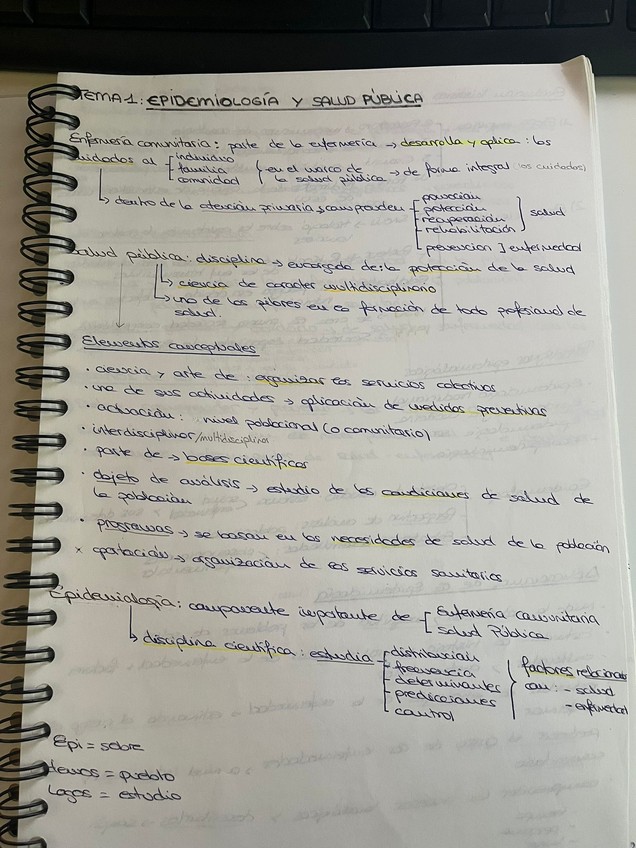 TEMA 1: EPIDEMIOLOGÍA Y SALUD PÚBLICA
Enfermería comunitaria: parte de la enfermería → desarrolla y aplica: los
cuidados al
individuo
familia
comunidad
en el marco de
la salud pública → de forma integral (los cuidados)
↳ dentro de la atención primaria y comprenden
promoción
protección
recuperación
rehabilitación
salud
prevención ] enfermedad
Salud pública: disciplina → encargada de: la protección de la salud
↳ ciencia de caracter multidisciplinario
↳ uno de los pilares en la formación de todo profesional de
salud.
Elementos conceptuales
• ciencia y arte de: organizar los servicios colectivos
• una de sus actividades → aplicación de medidas preventivas
• actuación: nivel poblacional (o comunitario)
• interdisciplinar/multidisciplinar
• parte de → bases científicas
• objeto de análisis → estudio de las condiciones de salud de
la población
• programas → se basan en las necesidades de salud de la población
× aportación → organización de los servicios sanitarios
Epidemiología: componente importante de
Enfermería comunitaria
Salud Pública
↳ disciplina científica: estudia
distribución
frecuencia
determinantes
predicciones
control
factores relacionados
con: - salud
- enfermedad
Epi = sobre
demos = pueblo
Logos = estudio